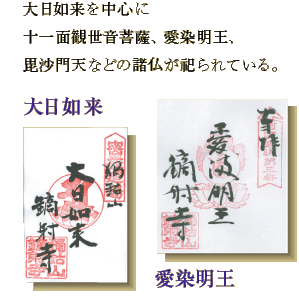 大日如来を中心に
十一面観世音菩薩、愛染明王、
毘沙門天などの諸仏が祀られている。
大日如来
大日如来
鏑射寺
奉拝
愛染明王
鏑射寺
愛染明王